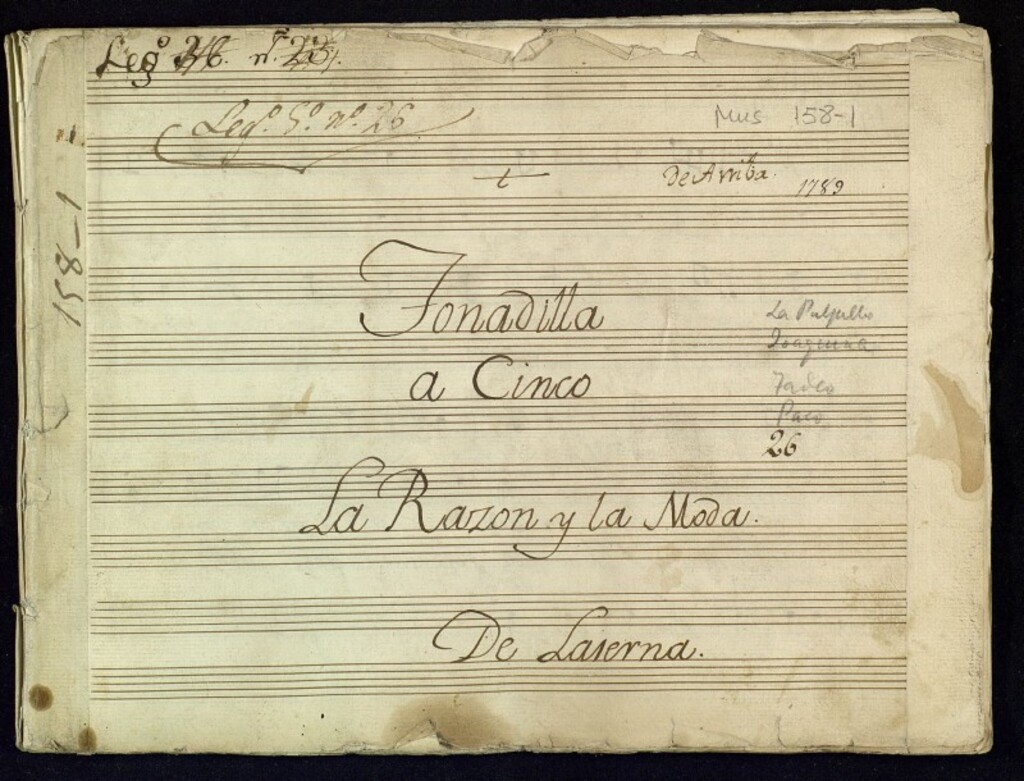 Leg.º nº
Leg.º 5.º nº. 26
Mus 158-1
t
De Arriba. 1789
158-1
Tonadilla
a Cinco
La
Joaquina
Tadeo
Paco
26
La Razon y la Moda.
De Laserna.